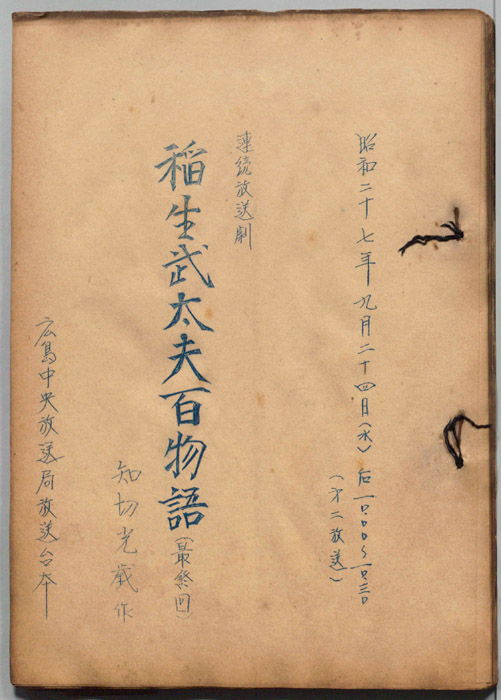 昭和二十七年九月二十四日(水) 后一〇.〇〇〜一〇.三〇
(才二放送)
連続放送劇
稲生武太夫百物語(最終回)
知切光歳 作
広島中央放送局放送台本